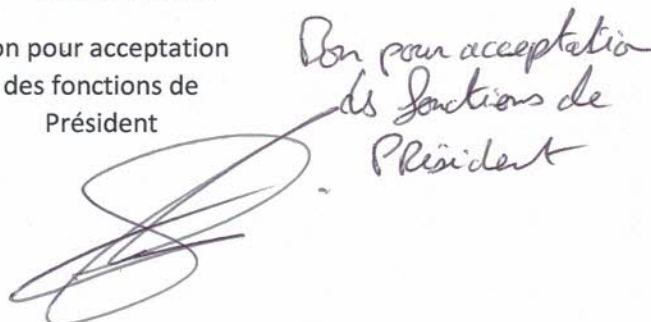 on pour acceptation
des fonctions de
Président
Bon pour acceptation
des fonctions de
PRésident